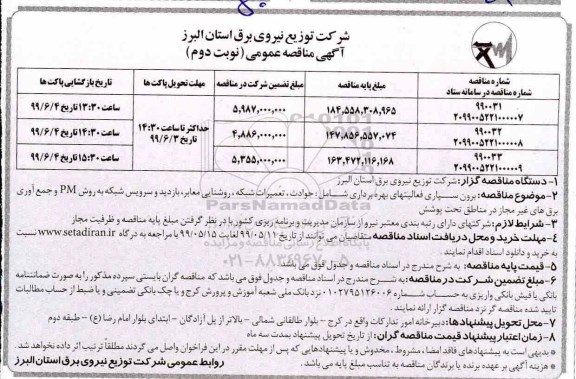 شرکت توزیع نیروی برق استان البرز
آگهی مناقصه عمومی (نوبت دوم)
شماره مناقصه
شماره مناقصه در سامانه ستاد
مبلغ پایه مناقصه
مبلغ تضمین شرکت در مناقصه
مهلت تحویل پاکت ها
تاریخ بازگشایی پاکت ها
۹۹۰۰۳۱
۲۰۹۹۰۰۵۲۲۱۰۰۰۰۰۷
۱۸۴,۵۵۸,۳۰۸,۹۶۵
۵,۹۸۷,۰۰۰,۰۰۰
حداکثر تا ساعت ۱۴:۳۰
تاریخ ۹۹/۶/۳
ساعت ۱۳:۳۰ تاریخ ۹۹/۶/۴
۹۹۰۰۳۲
۲۰۹۹۰۰۵۲۲۱۰۰۰۰۰۸
۱۴۷,۸۵۶,۵۵۷,۰۷۴
۴,۸۸۶,۰۰۰,۰۰۰
ساعت ۱۴:۳۰ تاریخ ۹۹/۶/۴
۹۹۰۰۳۳
۲۰۹۹۰۰۵۲۲۱۰۰۰۰۰۹
۱۶۳,۴۷۲,۱۱۶,۱۶۸
۵,۳۵۵,۰۰۰,۰۰۰
ساعت ۱۵:۳۰ تاریخ ۹۹/۶/۴
۱- دستگاه مناقصه گزار: شرکت توزیع نیروی برق استان البرز
۲- موضوع مناقصه: برون سپاری فعالیتهای بهره برداری شامل: حوادث، تعمیرات شبکه، روشنایی معابر، بازدید و سرویس شبکه به روش PM و جمع آوری
برق های غیر مجاز در مناطق تحت پوشش
۳- شرایط لازم: شرکتهای دارای رتبه بندی معتبر نیرو از سازمان مدیریت و برنامه ریزی کشور با در نظر گرفتن مبلغ پایه مناقصه و ظرفیت مجاز
۴- مهلت خرید و محل دریافت اسناد مناقصه: متقاضیان می توانند از تاریخ ۹۹/۰۵/۱۱ لغایت ۹۹/۰۵/۱۵ با مراجعه به درگاه www.setadiran.ir نسبت
به خرید و دانلود اسناد اقدام نمایند.
۵- قیمت پایه مناقصه: به شرح مندرج در اسناد مناقصه و جدول فوق می باشد.
۶- مبلغ تضمین شرکت در مناقصه: به شرح مندرج در اسناد مناقصه و جدول فوق می باشد که مناقصه گران بایستی سپرده مذکور را به صورت ضمانتنامه
بانکی یا فیش بانکی واریزی به حساب شماره ۰۱۰۲۷۹۵۱۲۶۰۰۶ نزد بانک ملی شعبه آموزش و پرورش کرج و یا چک بانکی تضمینی و یا ضبط از حساب مطالبات
تایید شده مناقصه گر نزد مناقصه گزار ارائه نمایند.
۷- محل تحویل پیشنهادها: دبیرخانه امور تدارکات واقع در کرج - بلوار طالقانی شمالی - بالاتر از پل آزادگان - ابتدای بلوار امام رضا (ع) - طبقه دوم
۸- زمان اعتبار پیشنهاد قیمت مناقصه گران: از تاریخ تحویل پیشنهاد بمدت سه ماه
* بدیهی است به پیشنهادهای فاقد امضا، مشروط، مخدوش و یا پیشنهادهایی که پس از مهلت مقرر در این فراخوان واصل می گردند مطلقاً ترتیب اثر داده نخواهد شد.
* هزینه آگهی بر عهده برنده یا برندگان مناقصه به تناسب مبلغ پایه می باشد.
روابط عمومی شرکت توزیع نیروی برق استان البرز
ParsNamadData
۰۲۱-۸۸۳۴۹۶۷۰-۵